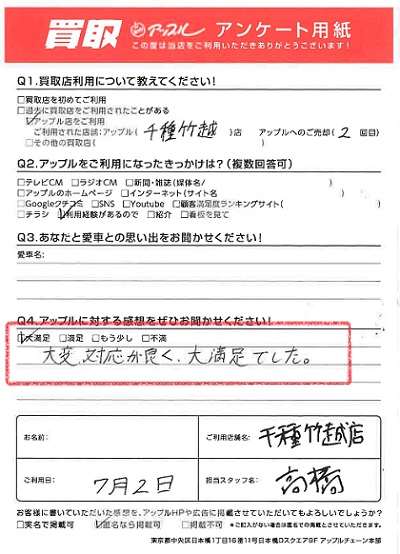 買取 アップル アンケート用紙
この度は当店をご利用いただきありがとうございます！
Q1.買取店利用について教えてください！
□買取店を初めてご利用
□過去に買取店をご利用されたことがある
□アップル店をご利用
ご利用された店舗:アップル( 千種竹越 )店 アップルへのご売却( 2 回目)
□その他の買取店( )
Q2.アップルをご利用になったきっかけは？(複数回答可)
□テレビCM □ラジオCM □新聞・雑誌(媒体名/ )
□アップルのホームページ □インターネット(サイト名 )
□Googleクチコミ □SNS □Youtube □顧客満足度ランキングサイト( )
□チラシ □利用経験があるので □紹介 □看板を見て
Q3.あなたと愛車との思い出をお聞かせください！
愛車名:
Q4.アップルに対する感想をぜひお聞かせください！
□大満足 □満足 □もう少し □不満
大変、対応が良く、大満足でした。
お名前: ご利用店舗名: 千種竹越店
ご利用日: 7月2日 担当スタッフ名: 高橋
お客様に書いていただいた感想を、アップルHPや広告に掲載させていただいてもよろしいでしょうか？
□実名で掲載可 □匿名なら掲載可 □掲載不可 ＊ご記入がない場合は匿名での掲載とさせていただきます。
東京都中央区日本橋1丁目16番11号日本橋Dスクエア9F アップルチェーン本部